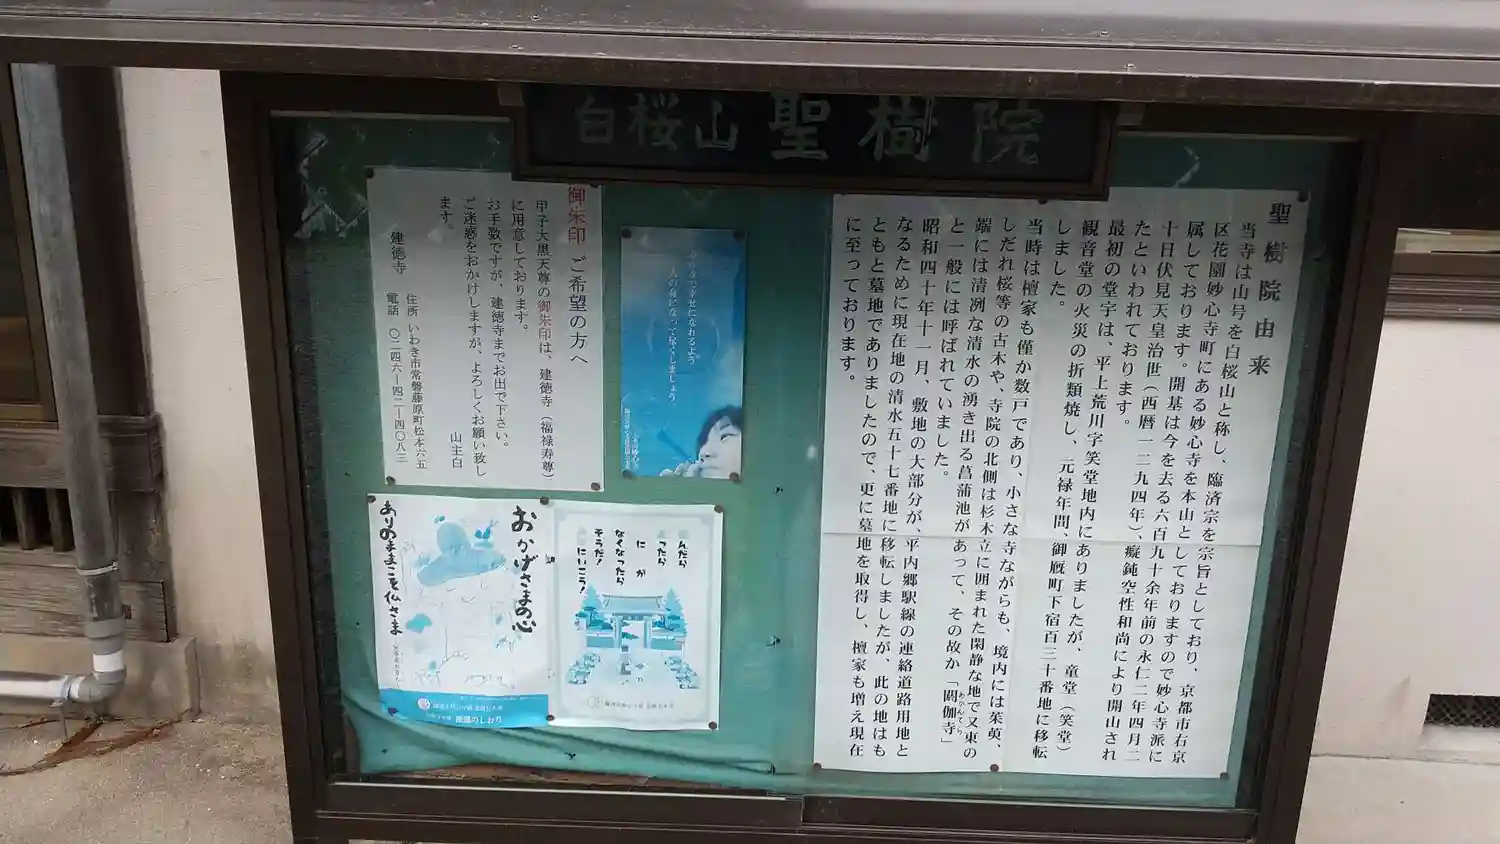 白桜山 聖樹院
聖樹院由来
当寺は山号を白桜山と称し、臨済宗を宗旨としており、京都市右京
区花園妙心寺町にある妙心寺を本山としておりますので妙心寺派に
属しております。開基は今を去る六百九十余年前の永仁二年四月二
十日伏見天皇治世(西暦一二九四年)、癡鈍空性和尚により開山され
たといわれております。
最初の堂宇は、平上荒川字笑堂地内にありましたが、童堂(笑堂)
観音堂の火災の折類焼し、元禄年間、御厩町下宿百三十番地に移転
しました。
当時は檀家も僅か数戸であり、小さな寺ながらも、境内には茱萸、
しだれ桜等の古木や、寺院の北側は杉木立に囲まれた閑静な地で又東の
端には清冽な清水の湧き出る菖蒲池があって、その故か「閼伽寺」
と一般には呼ばれていました。
昭和四十年十一月、敷地の大部分が、平内郷駅線の連絡道路用地と
なるために現在地の清水五十七番地に移転しましたが、此の地はも
ともと墓地でありましたので、更に墓地を取得し、檀家も増え現在
に至っております。
御朱印 ご希望の方へ
甲子大黒天尊の御朱印は、建徳寺(福禄寿尊)
に用意しております。
お手数ですが、建徳寺までお出で下さい。
ご迷惑をおかけしますが、よろしくお願い致し
ます。
山主白
建徳寺 住所 いわき市常磐藤原町松本六五
電話 〇二四六ー四二ー四〇八三
みんなで幸せになれるよう
人の為になって尽くしましょう。
おかげさまの心
ありのままこそ仏さま
んだら
ったら
に が
なくなったら
そうだ!
にいこう!